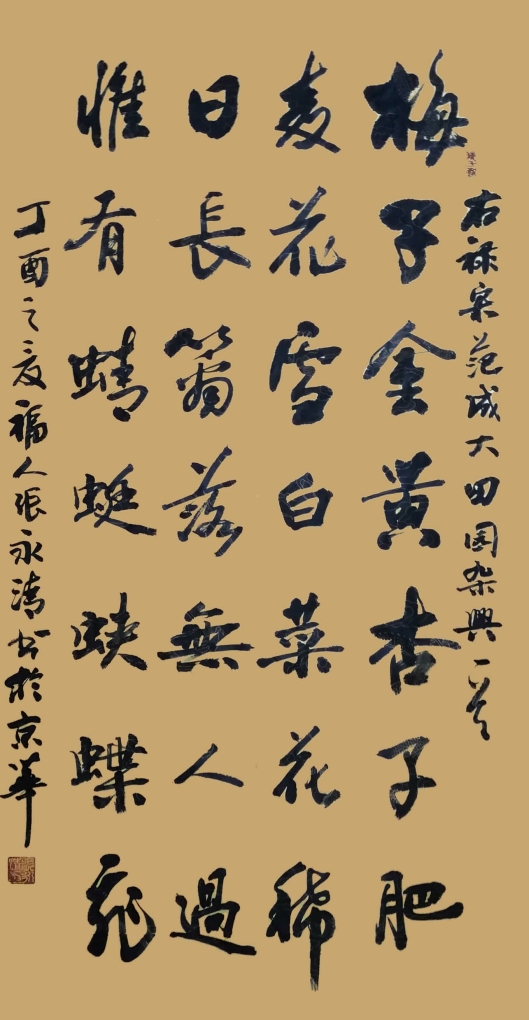 右禄宋范成大田园杂興一首
梅子金黄杏子肥
麦花雪白菜花稀
日長篱落無人過
惟有蜻蜓蛱蝶飛
丁酉之夏福人张永清书於京華